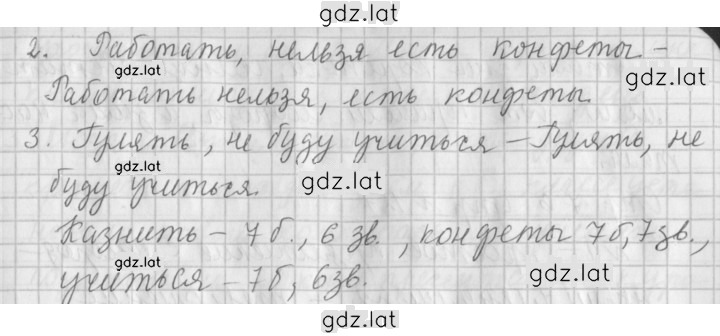 gdz.lat
2. Работать, нельзя есть конфеты –
gdz.lat
gdz.lat
Работать нельзя, есть конфеты.
3. Гулять, не буду учиться – Гулять, не
gdz.lat
gdz.lat
буду учиться.
Казнить – 7 б., 6 зв., конфеты 7б, 7зв.,
gdz.lat
gdz.lat
учиться – 7б, 6зв.
gdz.lat